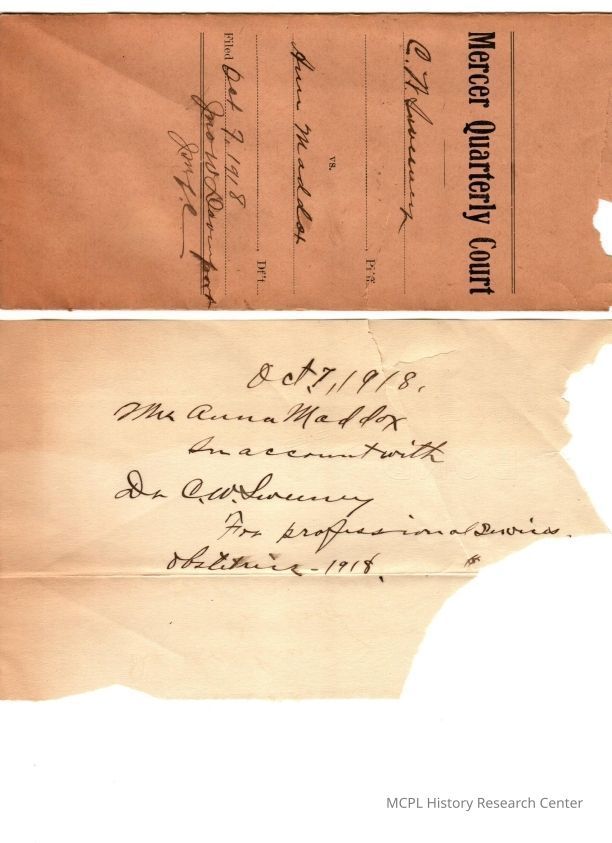 Mercer Quarterly Court
C. W. Sweeney
Pl'ff.
vs.
Ann Maddox
Df't.
Filed Oct 7, 1918
Jno W Davenport
Oct. 7, 1918.
Mrs Anna Maddox
In account with
Dr C. W. Sweeney
For professional services.
Obstetrics - 1918. $
MCPL History Research Center